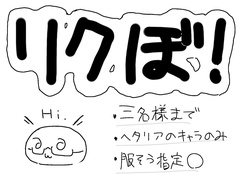 リクぼ!
Hi.
・三名様まで
・ヘタリアのキャラのみ
・服そう指定○